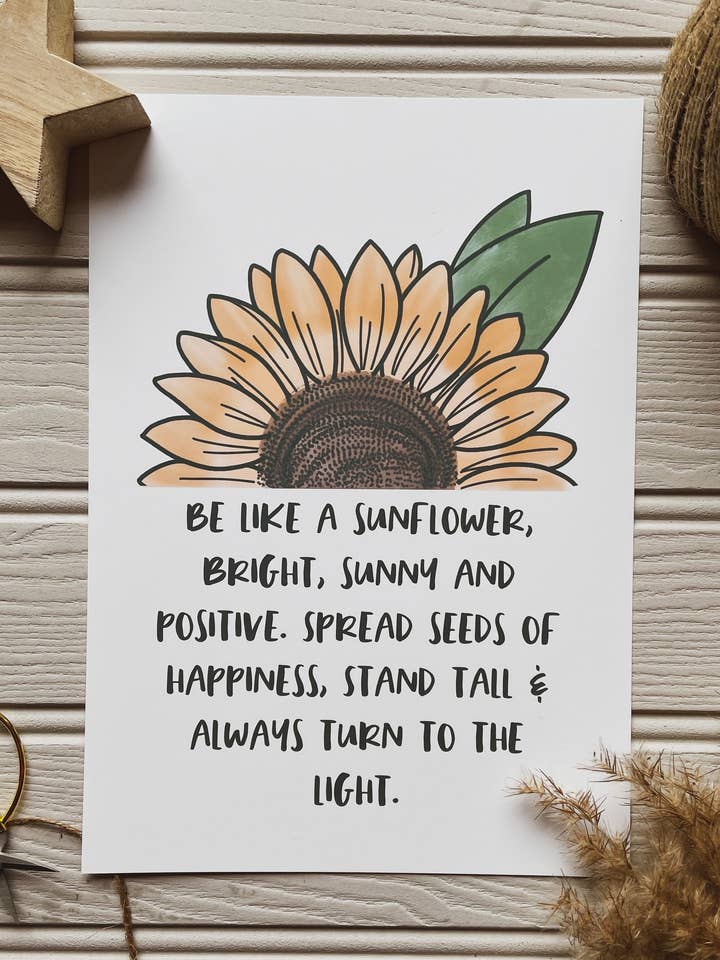 BE LIKE A SUNFLOWER,
BRIGHT, SUNNY AND
POSITIVE. SPREAD SEEDS OF
HAPPINESS, STAND TALL &
ALWAYS TURN TO THE
LIGHT.